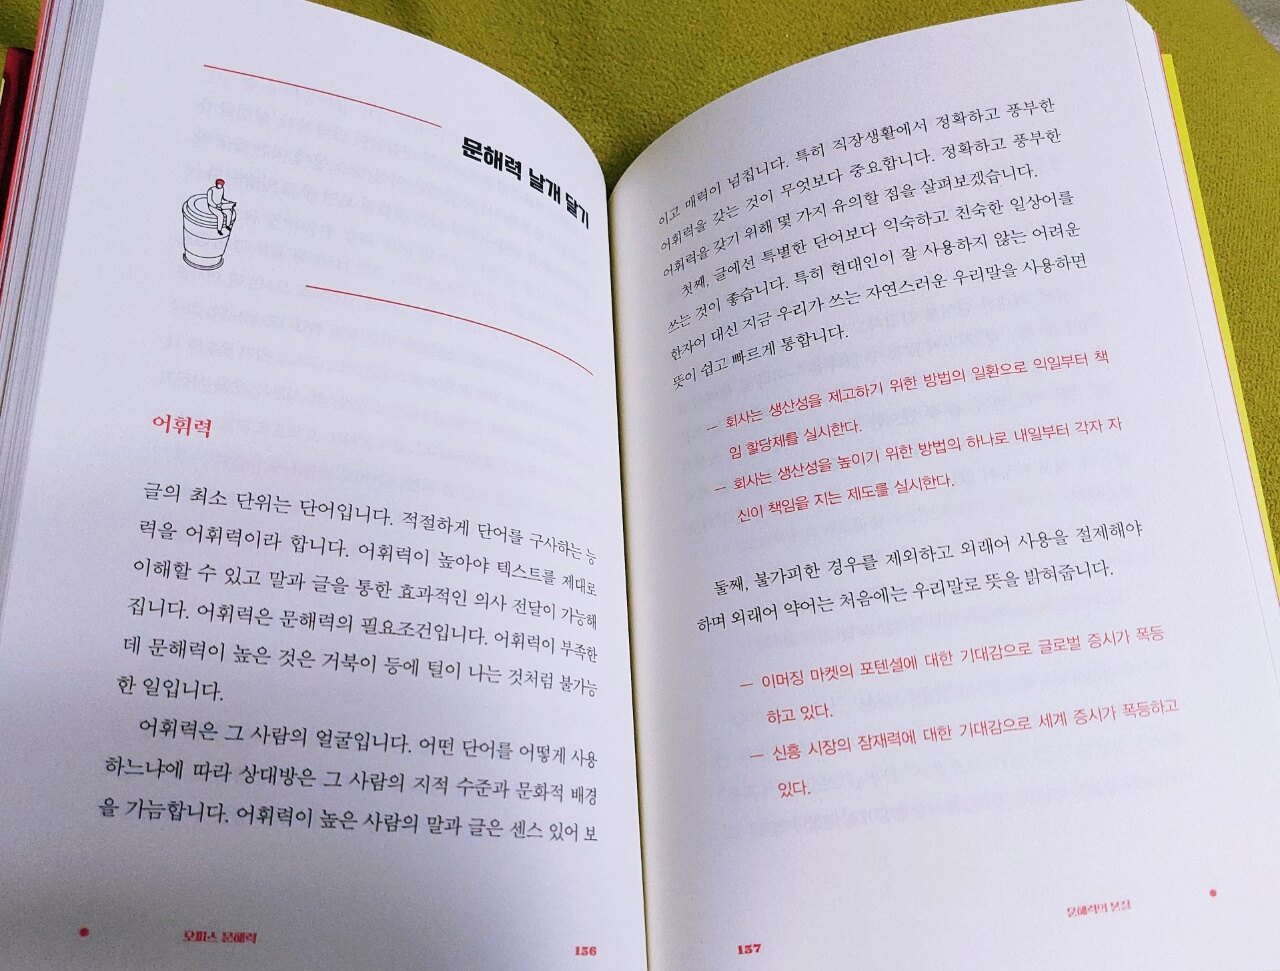 문해력 날개 달기
어휘력
글의 최소 단위는 단어입니다. 적절하게 단어를 구사하는 능
력을 어휘력이라 합니다. 어휘력이 높아야 텍스트를 제대로
이해할 수 있고 말과 글을 통한 효과적인 의사 전달이 가능해
집니다. 어휘력은 문해력의 필요조건입니다. 어휘력이 부족한
데 문해력이 높은 것은 거북이 등에 털이 나는 것처럼 불가능
한 일입니다.
어휘력은 그 사람의 얼굴입니다. 어떤 단어를 어떻게 사용
하느냐에 따라 상대방은 그 사람의 지적 수준과 문화적 배경
을 가늠합니다. 어휘력이 높은 사람의 말과 글은 센스 있어 보
오피스 문해력
156
이고 매력이 넘칩니다. 특히 직장생활에서 정확하고 풍부한
어휘력을 갖는 것이 무엇보다 중요합니다. 정확하고 풍부한
어휘력을 갖기 위해 몇 가지 유의할 점을 살펴보겠습니다.
첫째, 글에선 특별한 단어보다 익숙하고 친숙한 일상어를
쓰는 것이 좋습니다. 특히 현대인이 잘 사용하지 않는 어려운
한자어 대신 지금 우리가 쓰는 자연스러운 우리말을 사용하면
뜻이 쉽고 빠르게 통합니다.
– 회사는 생산성을 제고하기 위한 방법의 일환으로 익일부터 책
임 할당제를 실시한다.
– 회사는 생산성을 높이기 위한 방법의 하나로 내일부터 각자 자
신이 책임을 지는 제도를 실시한다.
둘째, 불가피한 경우를 제외하고 외래어 사용을 절제해야
하며 외래어 약어는 처음에는 우리말로 뜻을 밝혀줍니다.
– 이머징 마켓의 포텐셜에 대한 기대감으로 글로벌 증시가 폭등
하고 있다.
– 신흥 시장의 잠재력에 대한 기대감으로 세계 증시가 폭등하고
있다.
157
문해력의 본질